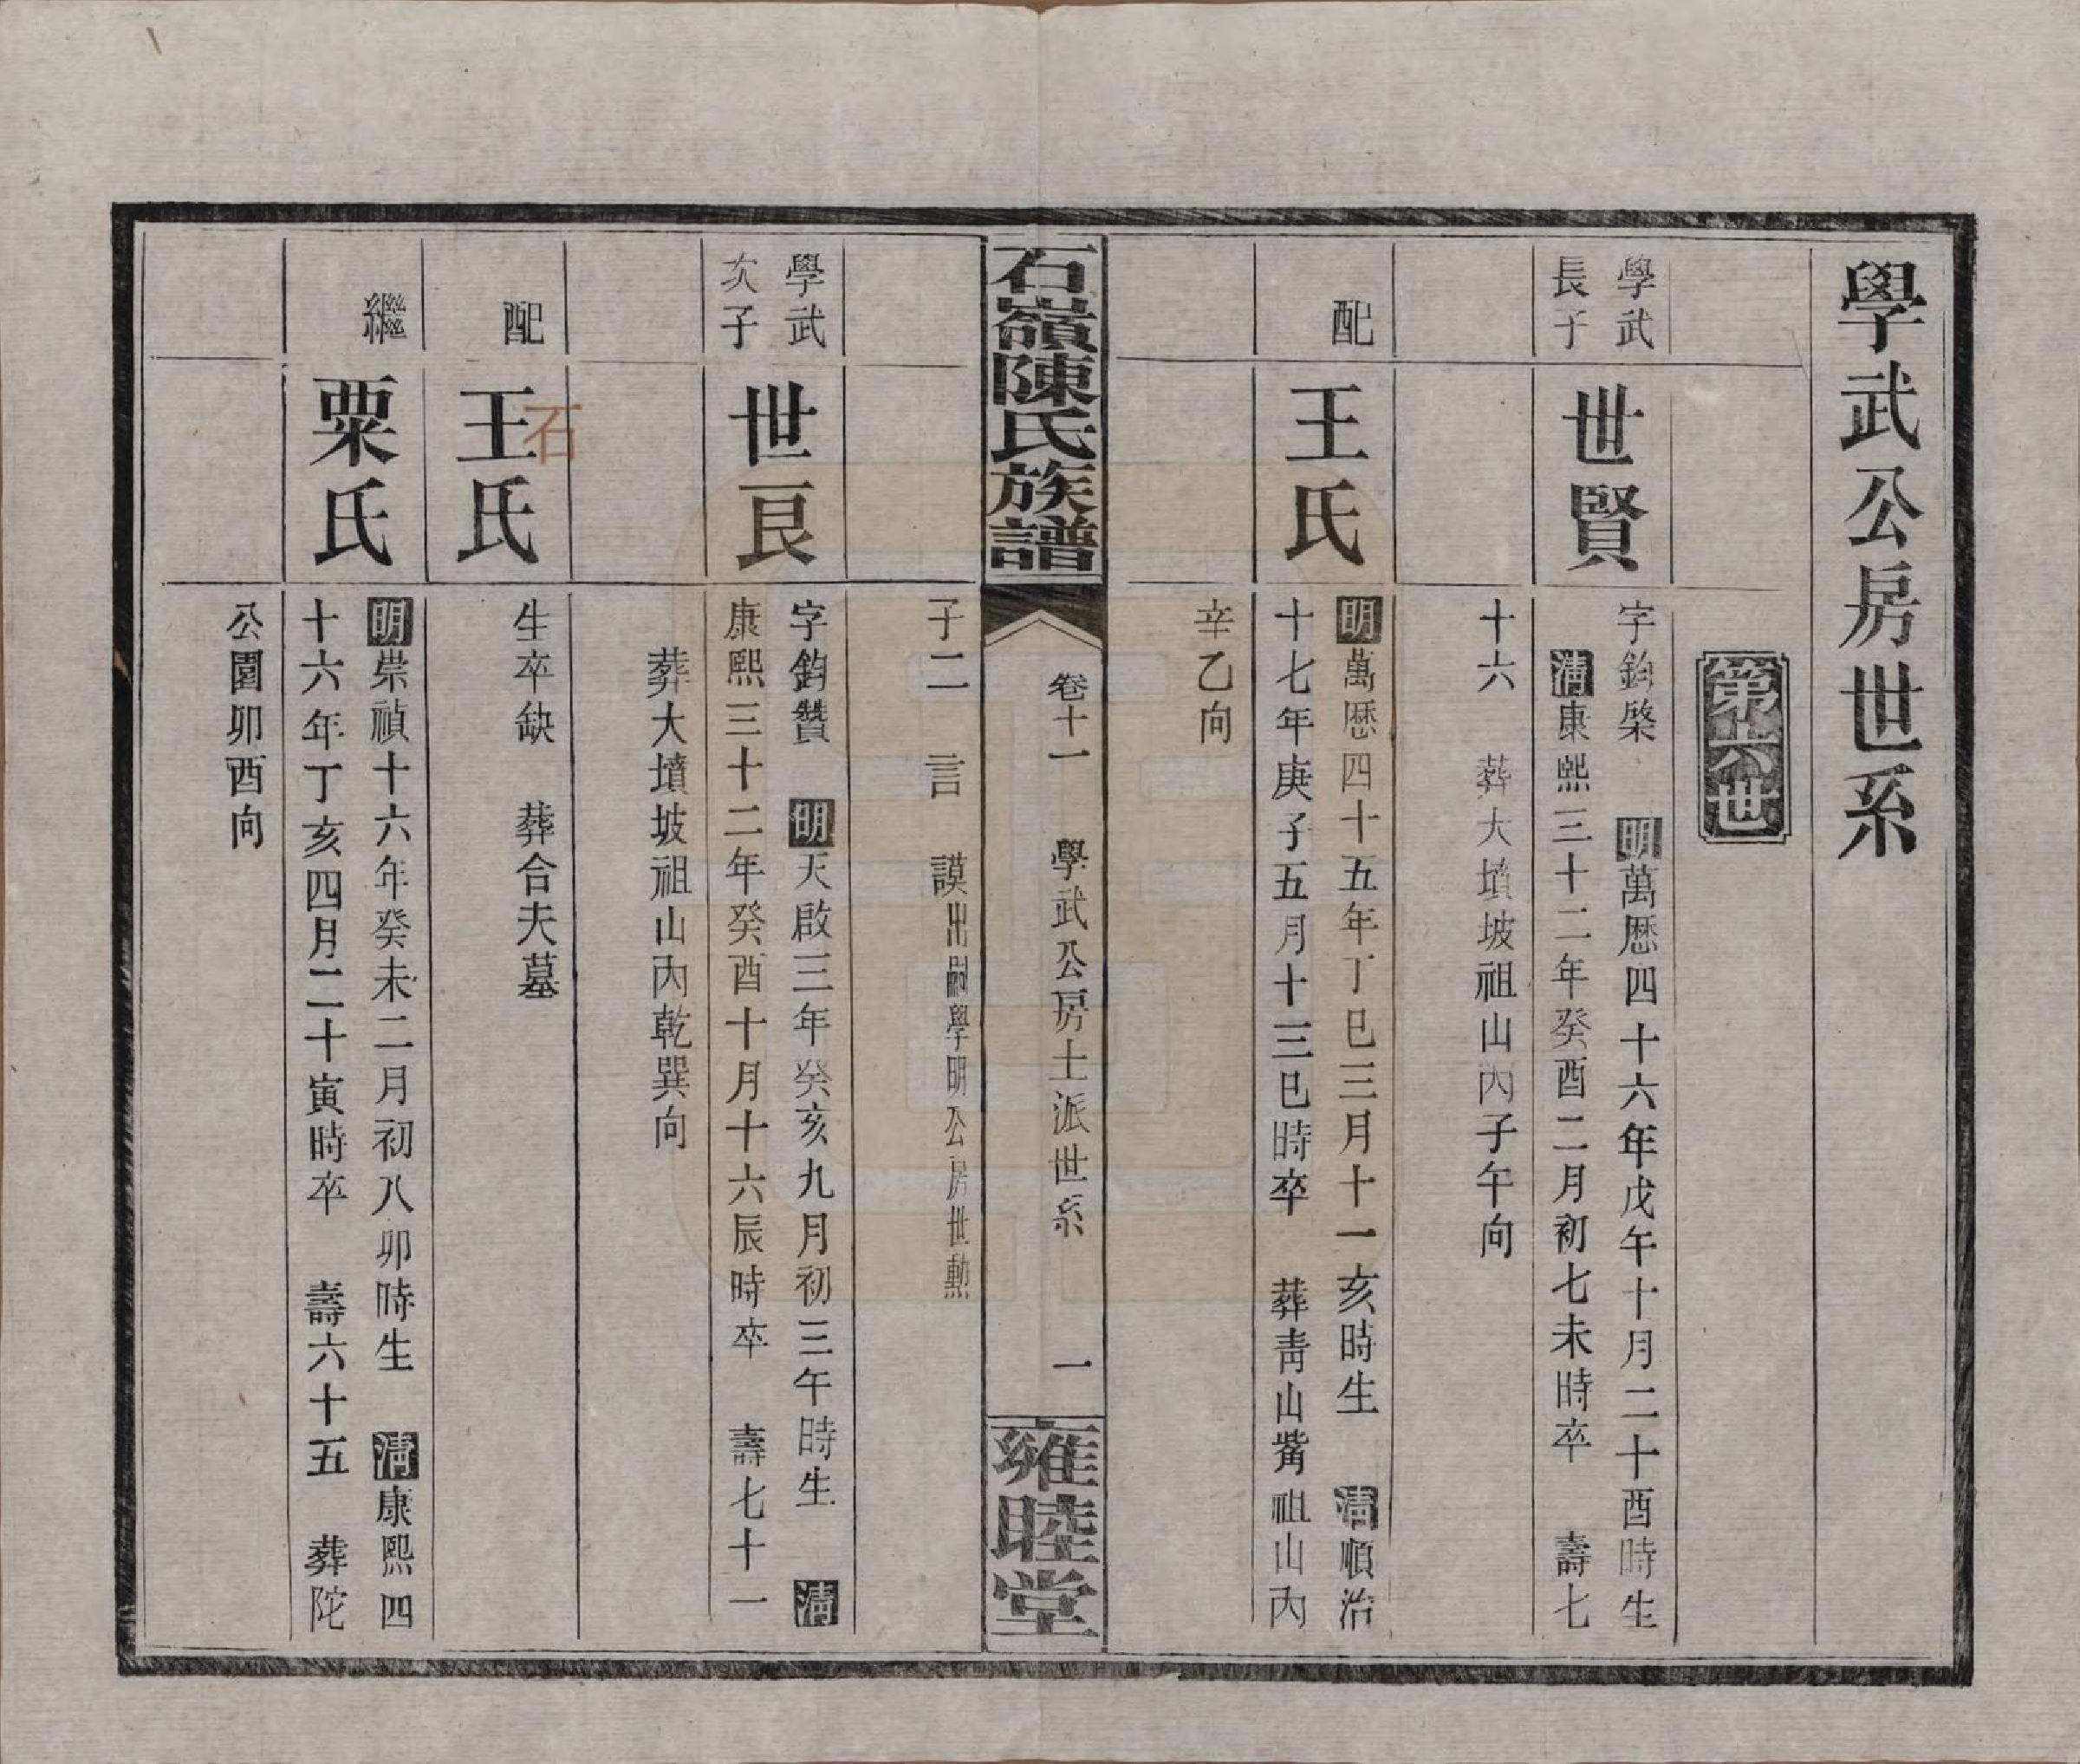 學武公房世系
第六世
學武
長子
世賢
字鈞棨 明萬歷四十六年戊午十月二十酉時生
清康熙三十二年癸酉二月初七未時卒 壽七
十六 葬大墳坡祖山內子午向
配
王氏
明萬歷四十五年丁巳三月十一亥時生 清順治
十七年庚子五月十三巳時卒 葬青山嘴祖山內
辛乙向
石嶺陳氏族譜
卷十一 學武公房土派世系 一
雍睦堂
子二 言 謨出嗣學明公房世勳
學武
次子
世艮
字鈞贊 明天啟三年癸亥九月初三午時生 清
康熙三十二年癸酉十月十六辰時卒 壽七十一
葬大墳坡祖山內乾巽向
配
王氏
石
生卒缺 葬合夫墓
繼
粟氏
明崇禎十六年癸未二月初八卯時生 清康熙四
十六年丁亥四月二十寅時卒 壽六十五 葬陀
公園卯酉向